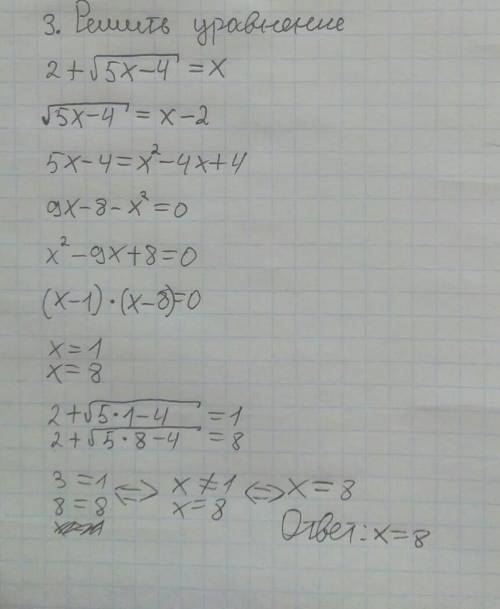 3. Решить уравнение
2+√5x-4 = x
√5x-4 = x-2
5x-4=x²-4x+4
9x-8-x²=0
x²-9x+8=0
(x-1)·(x-8)=0
x=1
x=8
2+√5·1-4 =1
2+√5·8-4 =8
3=1 <=> x≠1 <=> x=8
8=8 x=8
Ответ: x=8